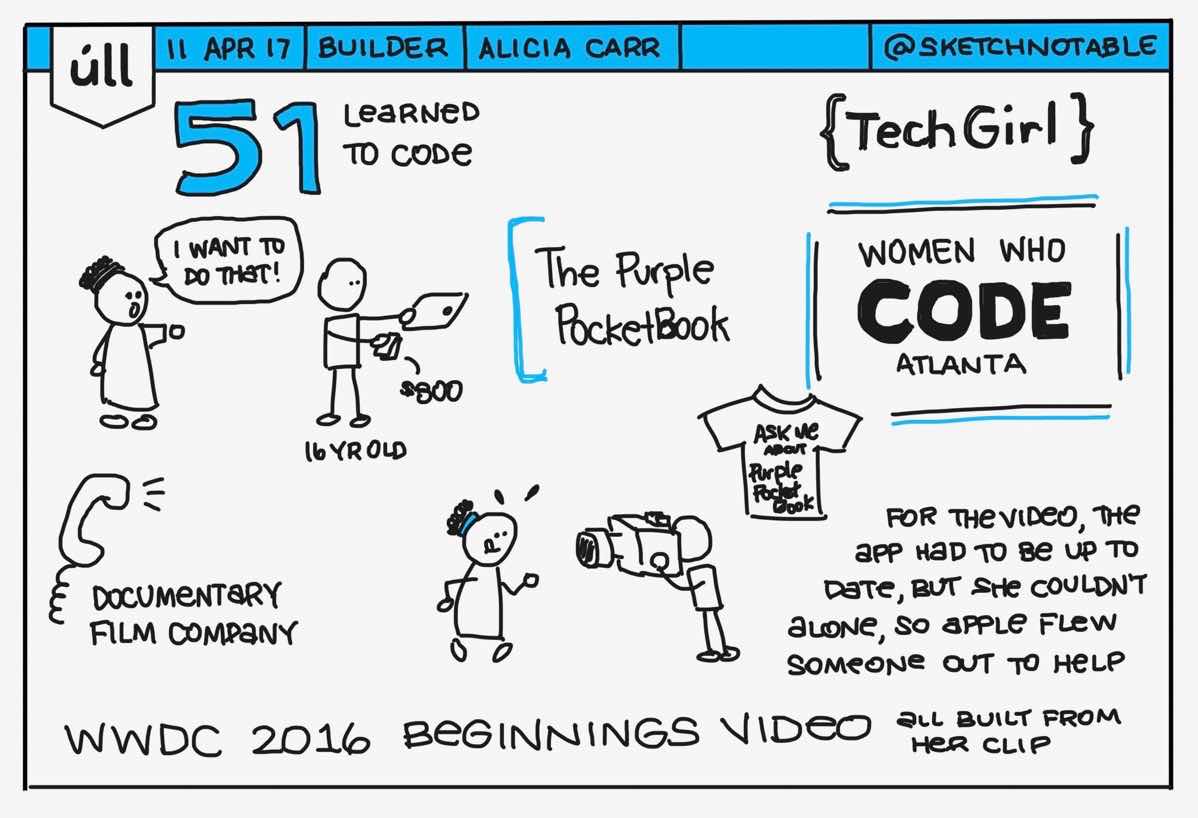 úll
11 APR 17
BUILDER
ALICIA CARR
@SKETCHNOTABLE
51
LEARNED
TO CODE
{TechGirl}
I WANT TO
DO THAT!
$800
16 YR OLD
The Purple
PocketBook
WOMEN WHO
CODE
ATLANTA
ASK ME
ABOUT
Purple
Pocket
Book
DOCUMENTARY
FILM COMPANY
FOR THE VIDEO, THE
APP HAD TO BE UP TO
DATE, BUT SHE COULDN'T
ALONE, SO APPLE FLEW
SOMEONE OUT TO HELP
WWDC 2016 BEGINNINGS VIDEO
ALL BUILT FROM
HER CLIP